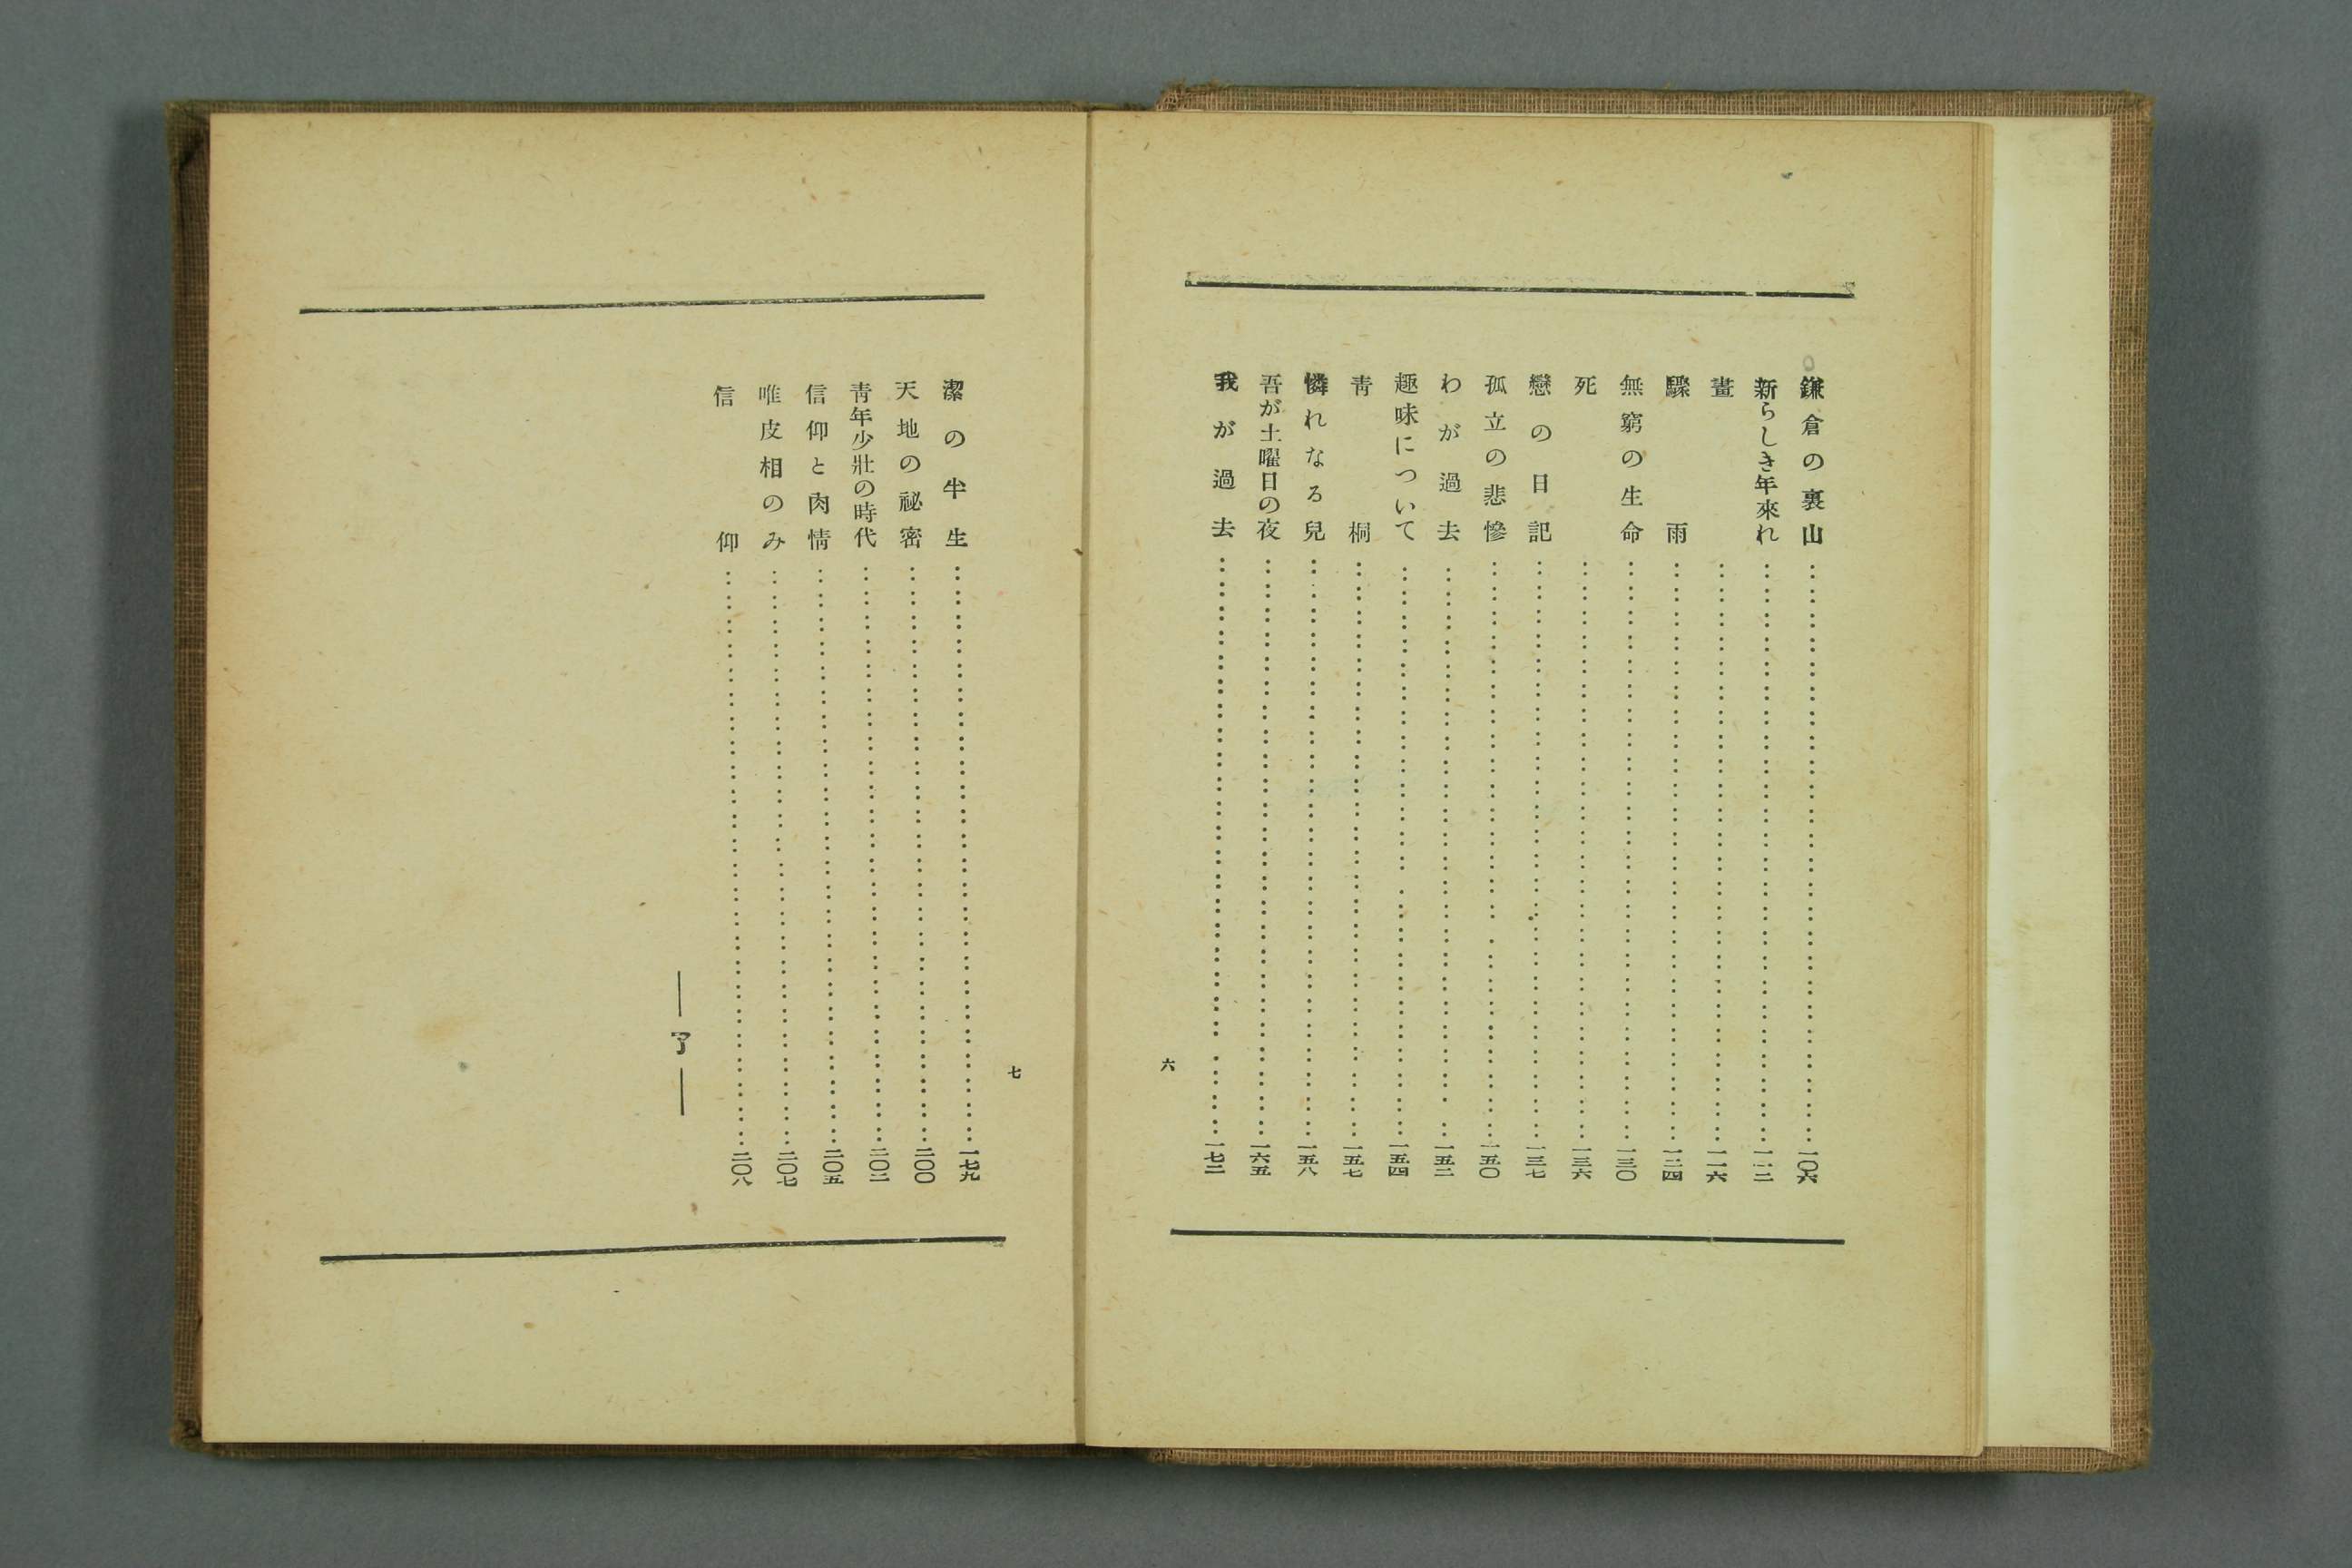 鎌倉の裏山…一〇六
新らしき年來れ…一一二
晝…一一六
驟雨…一二四
無窮の生命…一三〇
死…一三六
戀の日記…一三七
孤立の悲慘…一五〇
わが過去…一五二
趣味について…一五四
靑桐…一五七
憐れなる兒…一五八
吾が土曜日の夜…一六五
我が過去…一七二
六
七
潔の半生…一七九
天地の祕密…二〇〇
靑年少壯の時代…二〇二
信仰と肉情…二〇五
唯皮相のみ…二〇七
信仰…二〇八
―了―